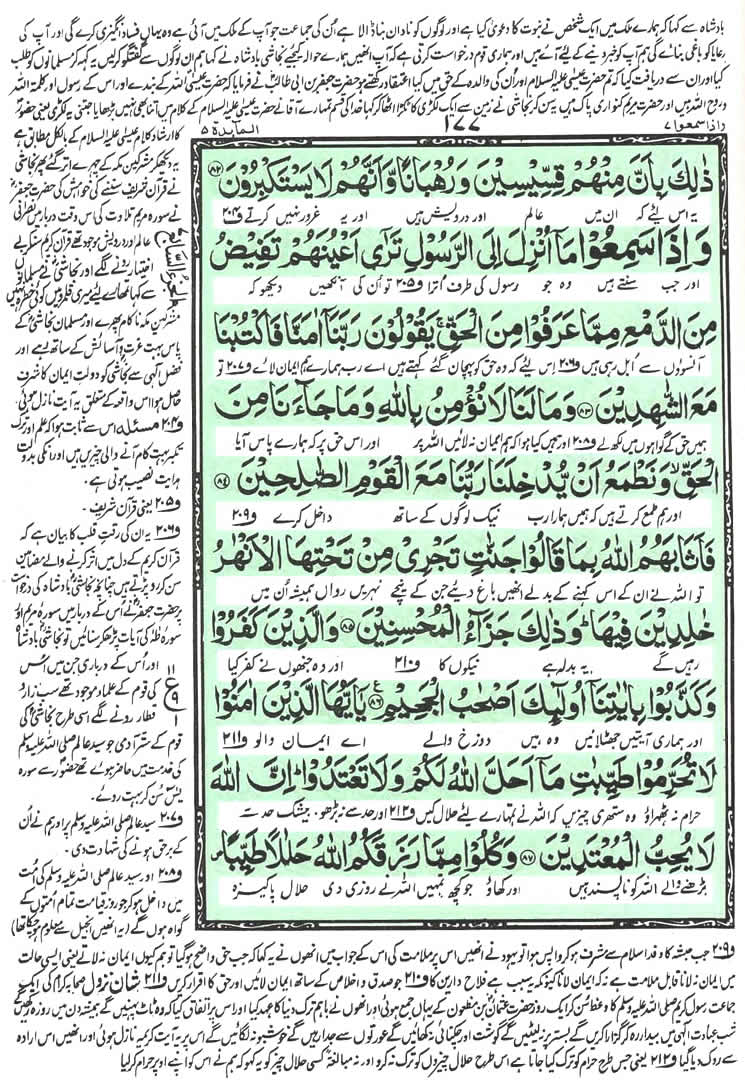 بادشاہ سے کہا کہ ہمارے ملک میں ایک شخص نے نبوت کا دعویٰ کیا ہے اور لوگوں کو نادان بنا ڈالا ہے اُن کی جماعت جو آپ کے ملک میں آئی ہے وہ یہاں فساد انگیزی کرے گی اور آپ کی
رعایا کو باغی بنائے گی ہم آپ کو خبر دینے کے لئے آئے ہیں اور ہماری قوم درخواست کرتی ہے کہ آپ انھیں ہمارے حوالہ کیجئے نجاشی بادشاہ نے کہا ہم ان لوگوں سے گفتگو کرلیں یہ کہہ کر مسلمانوں کو طلب
کیا اور ان سے دریافت کیا کہ تم حضرت عیسیٰ علیہ السلام اور اُن کی والدہ کے حق میں کیا اعتقاد رکھتے ہو حضرت جعفر بن ابی طالب نے فرمایا کہ حضرت عیسیٰ اللہ کے بندے اور اس کے رسول اور کلمۃ اللہ
و روح اللہ ہیں اور حضرت مریم کنواری پاک ہیں یہ سن کر نجاشی نے زمین سے ایک لکڑی کا ٹکڑا اٹھا کر کہا خدا کی قسم تمہارے آقا نے حضرت عیسیٰ علیہ السلام کے کلام میں اتنا بھی نہیں بڑھایا جتنی یہ لکڑی یعنی حضور
واذا سمعوا ٧
١٧٧
المائدة ٥
ذٰلِكَ بِاَنَّ مِنْهُمْ قِسِّيْسِيْنَ وَرُهْبَانًا وَّاَنَّهُمْ لَا يَسْتَكْبِرُوْنَ ﴿٨٢﴾
یہ اس لئے کہ ان میں عالم اور درویش ہیں اور یہ غرور نہیں کرتے ف٢٠٤
وَاِذَا سَمِعُوْا مَاۤ اُنْزِلَ اِلَى الرَّسُوْلِ تَرٰۤى اَعْيُنَهُمْ تَفِيْضُ
اور جب سنتے ہیں وہ جو رسول کی طرف اُترا ف٢٠٥ تو اُن کی آنکھیں دیکھو کہ
مِنَ الدَّمْعِ مِمَّا عَرَفُوْا مِنَ الْحَقِّ ۚ يَقُوْلُوْنَ رَبَّنَاۤ اٰمَنَّا فَاكْتُبْنَا
آنسوؤں سے اُبل رہی ہیں ف٢٠٦ اِس لئے کہ وہ حق کو پہچان گئے کہتے ہیں اے رب ہمارے ہم ایمان لائے ف٢٠٧ تو
مَعَ الشّٰهِدِيْنَ ﴿٨٣﴾ وَمَا لَنَا لَا نُؤْمِنُ بِاللّٰهِ وَمَا جَآءَنَا مِنَ
ہمیں حق کے گواہوں میں لکھ لے ف٢٠٨ اور ہمیں کیا ہوا کہ ہم ایمان نہ لائیں اللہ پر اور اس حق پر کہ ہمارے پاس آیا
الْحَقِّ ۙ وَنَطْمَعُ اَنْ يُّدْخِلَنَا رَبُّنَا مَعَ الْقَوْمِ الصّٰلِحِيْنَ ﴿٨٤﴾
اور ہم طمع کرتے ہیں کہ ہمیں ہمارا رب نیک لوگوں کے ساتھ داخل کرے ف٢٠٩
فَاَثَابَهُمُ اللّٰهُ بِمَا قَالُوْا جَنّٰتٍ تَجْرِيْ مِنْ تَحْتِهَا الْاَنْهٰرُ
تو اللہ نے ان کے اس کہنے کے بدلے انھیں باغ دیئے جن کے نیچے نہریں رواں ہمیشہ اُن میں
خٰلِدِيْنَ فِيْهَا ؕ وَذٰلِكَ جَزَآءُ الْمُحْسِنِيْنَ ﴿٨٥﴾ وَالَّذِيْنَ كَفَرُوْا
رہیں گے یہ بدلہ ہے نیکوں کا ف٢١٠ اور وہ جنھوں نے کفر کیا
وَكَذَّبُوْا بِاٰيٰتِنَاۤ اُولٰٓئِكَ اَصْحٰبُ الْجَحِيْمِ ﴿٨٦﴾ يٰۤاَيُّهَا الَّذِيْنَ اٰمَنُوْا
اور ہماری آیتیں جھٹلائیں وہ ہیں دوزخ والے اے ایمان والو ف٢١١
لَا تُحَرِّمُوْا طَيِّبٰتِ مَاۤ اَحَلَّ اللّٰهُ لَكُمْ وَلَا تَعْتَدُوْا ؕ اِنَّ اللّٰهَ
حرام نہ ٹھہراؤ وہ ستھری چیزیں کہ اللہ نے تمہارے لئے حلال کیں ف٢١٢ اور حد سے نہ بڑھو بیشک حد سے
لَا يُحِبُّ الْمُعْتَدِيْنَ ﴿٨٧﴾ وَكُلُوْا مِمَّا رَزَقَكُمُ اللّٰهُ حَلٰلًا طَيِّبًا
بڑھنے والے اللہ کو ناپسند ہیں اور کھاؤ جو کچھ تمہیں اللہ نے روزی دی حلال پاکیزہ
کا ارشاد کلام عیسیٰ علیہ السلام کے بالکل مطابق ہے
یہ دیکھ کر مشرکین مکہ کے چہرے اتر گئے پھر نجاشی
نے قرآن شریف سننے کی خواہش کی حضرت جعفر
نے سورہ مریم تلاوت کی اس وقت دربار میں نصرانی
عالم اور درویش موجود تھے قرآن کریم سن کر بے
اختیار رونے لگے اور نجاشی نے مسلمانوں
سے کہا تمہارے لئے میری قلمرو میں کوئی خطرہ نہیں
مشرکین مکہ ناکام پھرے اور مسلمان نجاشی کے
پاس بہت عزت و آسائش کے ساتھ رہے اور
فضل الٰہی سے نجاشی کو دولتِ ایمان کا شرف
حاصل ہوا اس واقعہ کے متعلق یہ آیت نازل ہوئی
ف٢٠٤ مسئلہ اس سے ثابت ہوا کہ علم اور ترک
تکبر بہت کام آنے والی چیزیں ہیں اور انکی بدولت
ہدایت نصیب ہوتی ہے۔
ف٢٠٥ یعنی قرآن شریف۔
ف٢٠٦ یہ ان کی رقتِ قلب کا بیان ہے کہ
قرآن کریم کے دل میں اثر کرنے والے مضامین
سن کر رو پڑتے ہیں چنانچہ نجاشی بادشاہ کی درخواست
پر حضرت جعفر نے اُس کے دربار میں سورہ مریم اور
سورہ طٰہٰ کی آیات پڑھ کر سنائیں تو نجاشی بادشاہ
اور اُس کے درباری جن میں اُس
کی قوم کے علماء موجود تھے سب زار و
قطار رونے لگے اسی طرح نجاشی کی
قوم کے ستر آدمی جو سید عالم صلی اللہ علیہ وسلم
کی خدمت میں حاضر ہوئے تھے حضور سے سورہ
یٰسٓ سُن کر بہت روئے۔
ف٢٠٧ سید عالم صلی اللہ علیہ وسلم پر اور ہم نے اُن
کے برحق ہونے کی شہادت دی۔
ف٢٠٨ اور سید عالم صلی اللہ علیہ وسلم کی اُمت
میں داخل ہو کر جو روزِ قیامت تمام اُمتوں کے
گواہ ہوں گے (یہ انھیں انجیل سے معلوم ہو چکا تھا)
ف٢٠٩ جب حبشہ کا وفد اسلام سے مشرف ہو کر واپس ہوا تو یہود نے انھیں اس پر ملامت کی اس کے جواب میں انھوں نے یہ کہا کہ جب حق واضح ہو گیا تو ہم کیوں ایمان نہ لاتے یعنی ایسی حالت
میں ایمان نہ لانا قابل ملامت ہے نہ کہ ایمان لانا کیونکہ یہ سبب ہے فلاح دارین کا ف٢١٠ جو صدق و اخلاص کے ساتھ ایمان لائیں اور حق کا اقرار کریں ف٢١١ شان نزول صحابہ کرام کی ایک
جماعت رسول کریم صلی اللہ علیہ وسلم کا وعظ سن کر ایک روز حضرت عثمان بن مظعون کے یہاں جمع ہوئی اور انھوں نے باہم ترک دنیا کا عہد کیا اور اس پر اتفاق کیا کہ وہ ٹاٹ پہنیں گے ہمیشہ دن میں روزہ رکھیں گے
شب عبادت الٰہی میں بیدار رہ کر گزارا کریں گے بستر پر نہ لیٹیں گے گوشت اور چکنائی نہ کھائیں گے عورتوں سے جدا رہیں گے خوشبو نہ لگائیں گے اُس پر یہ آیت کریمہ نازل ہوئی اور انھیں اس ارادہ
سے روک دیا گیا ف٢١٢ یعنی جس طرح حرام کو ترک کیا جاتا ہے اس طرح حلال چیزوں کو ترک نہ کرو اور نہ مبالغۃً کسی حلال چیز کو یہ کہو کہ ہم نے اس کو اپنے اوپر حرام کر لیا